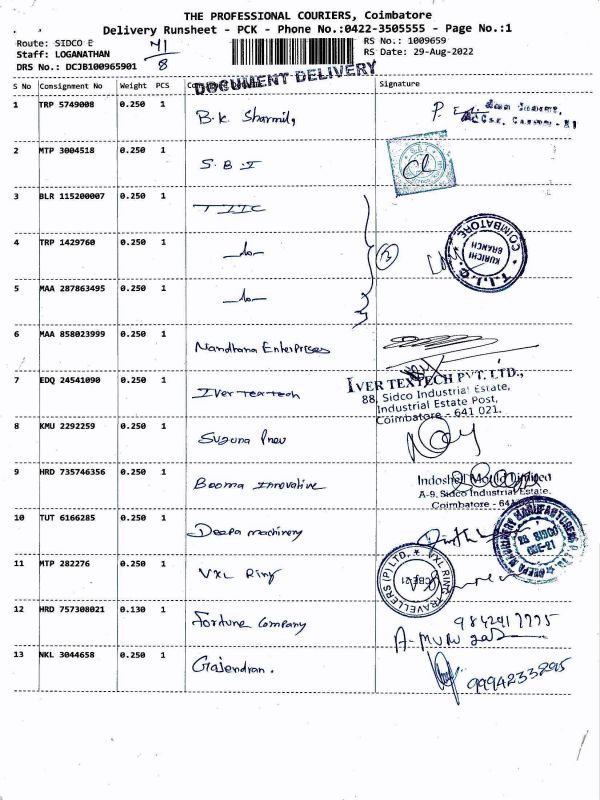 THE PROFESSIONAL COURIERS, Coimbatore
Delivery Runsheet - PCK - Phone No.:0422-3505555 - Page No.:1
Route: SIDCO E
Staff: LOGANATHAN
DRS No.: DCJB100965901
8
RS No.: 1009659
RS Date: 29-Aug-2022
DOCUMENT DELIVERY
S No Consignment No Weight PCS Signature
1 TRP 5749008 0.250 1 B.K. Sharmila
2 MTP 3004518 0.250 1 S.B.I
3 BLR 115200007 0.250 1 TIIC
4 TRP 1429760 0.250 1 -do-
5 MAA 287863495 0.250 1 -do-
COIMBATORE
KURICHI
BRANCH
T.I.I.C
6 MAA 858023999 0.250 1 Nandhana Enterprises
7 EDQ 24541090 0.250 1 Iver Textech
IVER TEXTECH PVT. LTD.,
88, Sidco Industrial Estate,
Industrial Estate Post,
Coimbatore - 641 021.
8 KMU 2292259 0.250 1 Suguna Pneu
9 HRD 735746356 0.250 1 Booma Innovative
Indoshell Mould Limited
A-9, Sidco Industrial Estate.
Coimbatore - 64
10 TUT 6166285 0.250 1 Deepa machinery
DEEPA MACHINERY MANUFACTURERS
SIDCO
CBE-21
11 MTP 282276 0.250 1 VXL Ring
VXL RING TRAVELLERS (P) LTD.
CBE-21
12 HRD 757308021 0.130 1 Fortune Company
9842417775
A-Murugad
13 NKL 3044658 0.250 1 Gajendran.